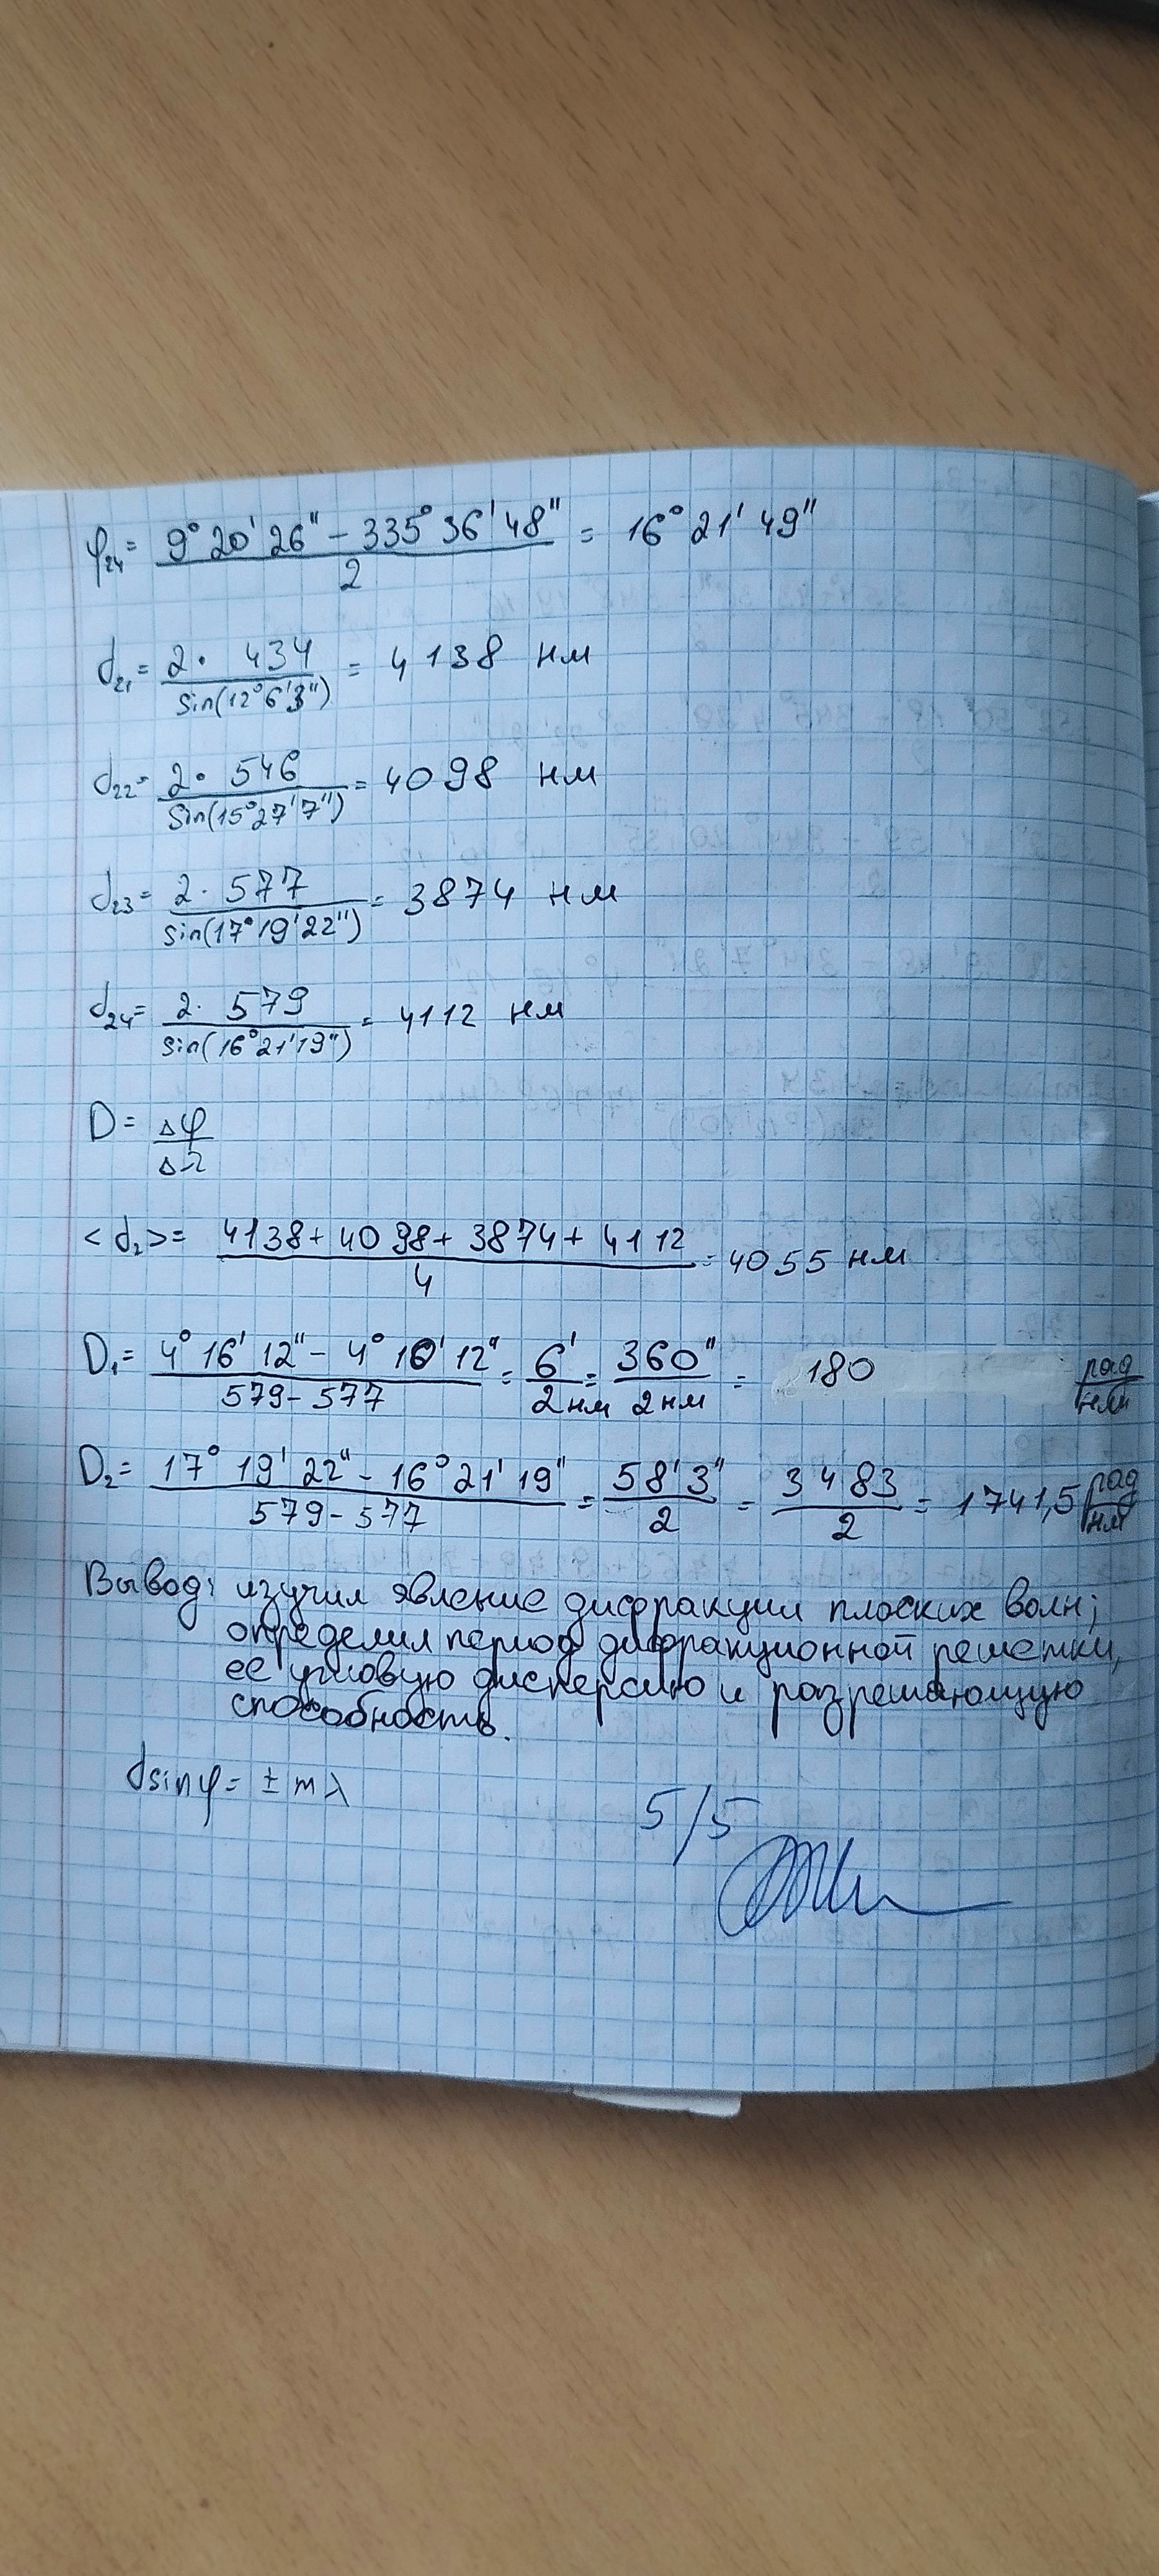 φ₂₄ = (9° 20' 26" - 335° 36' 48") / 2 = 16° 21' 49"
d₂₁ = 2 · 434 / sin(12° 6' 3") = 4138 нм
d₂₂ = 2 · 546 / sin(15° 27' 7") = 4098 нм
d₂₃ = 2 · 577 / sin(17° 19' 22") = 3874 нм
d₂₄ = 2 · 579 / sin(16° 21' 19") = 4112 нм
D = Δφ / Δλ
<d₂> = (4138 + 4098 + 3874 + 4112) / 4 = 4055 нм
D₁ = (4° 16' 12" - 4° 10' 12") / (579 - 577) = 6' / 2 нм = 360" / 2 нм = 180 рад/нм
D₂ = (17° 19' 22" - 16° 21' 19") / (579 - 577) = 58' 3" / 2 = 3483 / 2 = 1741,5 рад/нм
Вывод: изучил явление дифракции плоских волн;
определил период дифракционной решетки,
ее угловую дисперсию и разрешающую
способность.
dsinφ = ± mλ
5/5